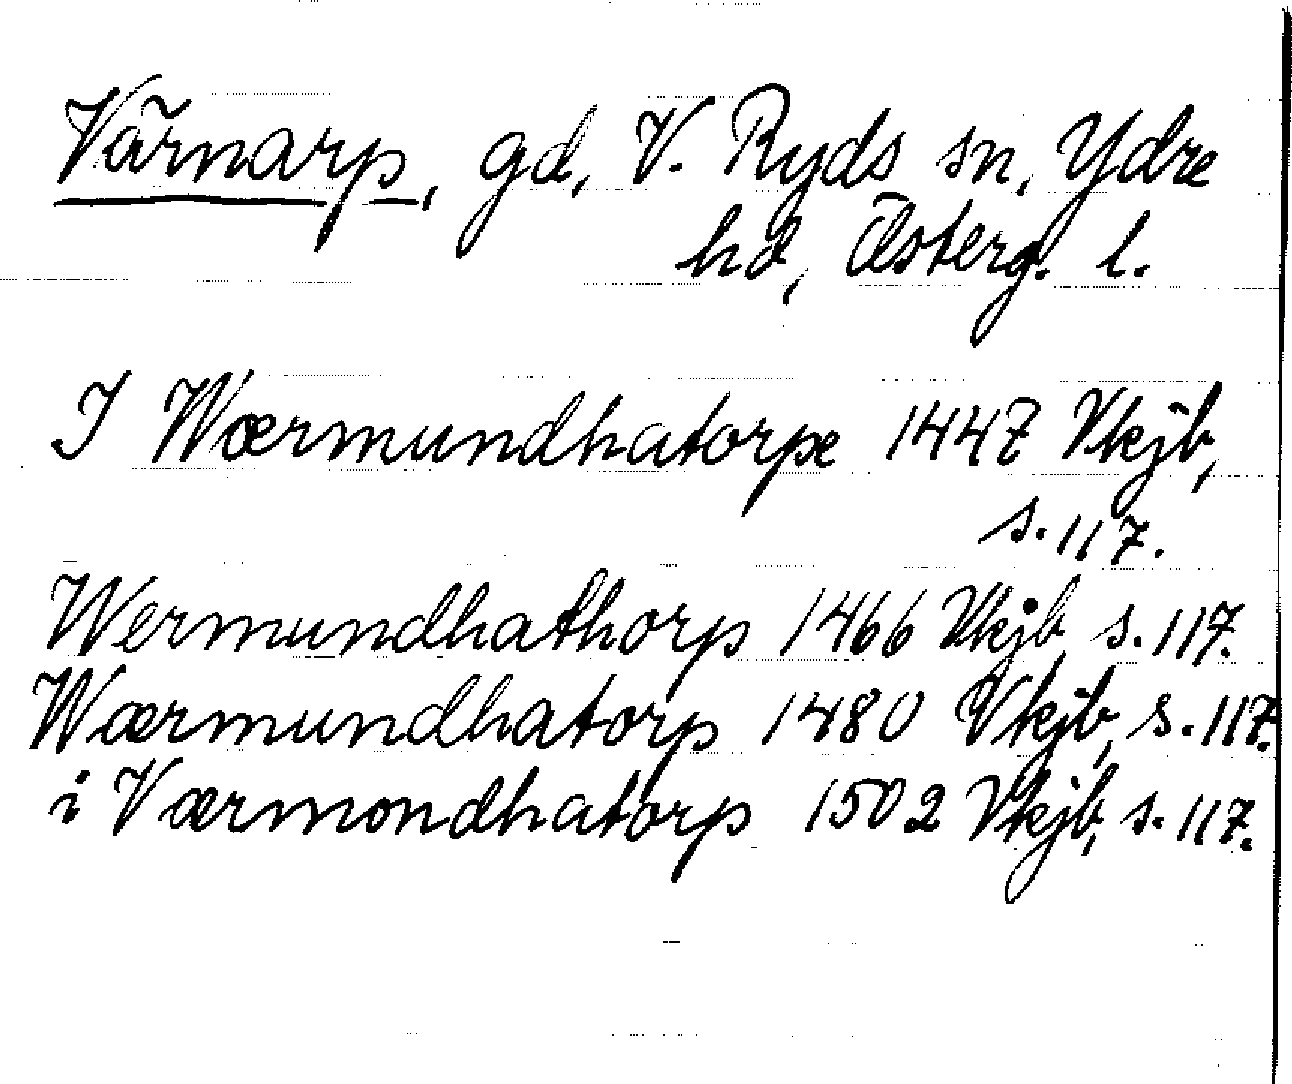 Värnarp, gd, V. Ryds sn, Ydre
hd, Österg. l.
I Wærmundhatorpe 1447 Vkjb,
s. 117.
Wermundhathorp 1466 Vkjb, s. 117.
Wærmundhatorp 1480 Vkjb, s. 117.
i Værmondhatorp 1502 Vkjb, s. 117.